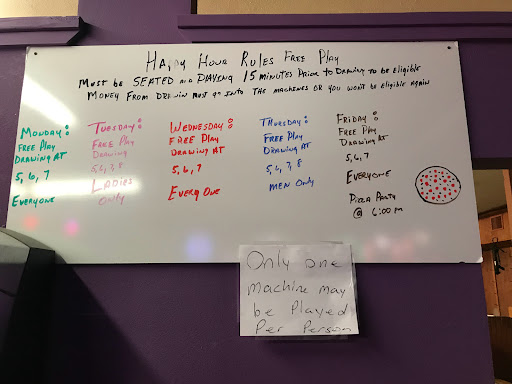 Happy Hour Rules Free Play
Must be SEATED and PLAYING 15 minutes Prior to Drawing to be Eligible
Money From Drawin must go into THE machines or you won't be eligible again
Monday:
Free Play
Drawing AT
5, 6, 7
Everyone
Tuesday:
Free Play
Drawing
5, 6, 7, 8
Ladies
Only
Wednesday:
Free Play
Drawing AT
5, 6, 7
Every one
Thursday:
Free Play
Drawing AT
5, 6, 7, 8
Men Only
Friday:
Free Play
Drawing AT
5, 6, 7
Everyone
Pizza Party
@ 6:00 pm
Only one
machine may
be Played
Per Person